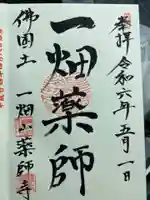 奉拝 令和六年五月一日
一畑薬師
佛國土 一畑山薬師寺